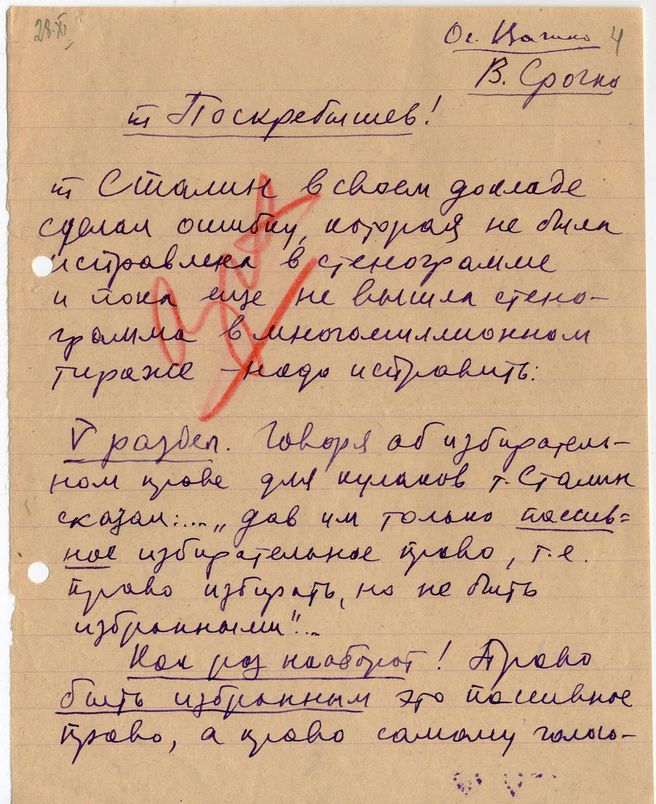 28.XI
4
В. Срочно
т Поскребышев!
т Сталин в своем докладе
сделал ошибку, которая не была
исправлена в стенограмме
и пока еще не вышла стено-
грамма в многомиллионном
тираже - надо исправить:
V раздел. Говоря об избиратель-
ном праве для кулаков т. Сталин
сказал:... „дав им только пассив-
ное избирательное право, т.е.
право избирать, но не быть
избранными"...
Как раз наоборот! Право
быть избранным это пассивное
право, а право самому голосо-